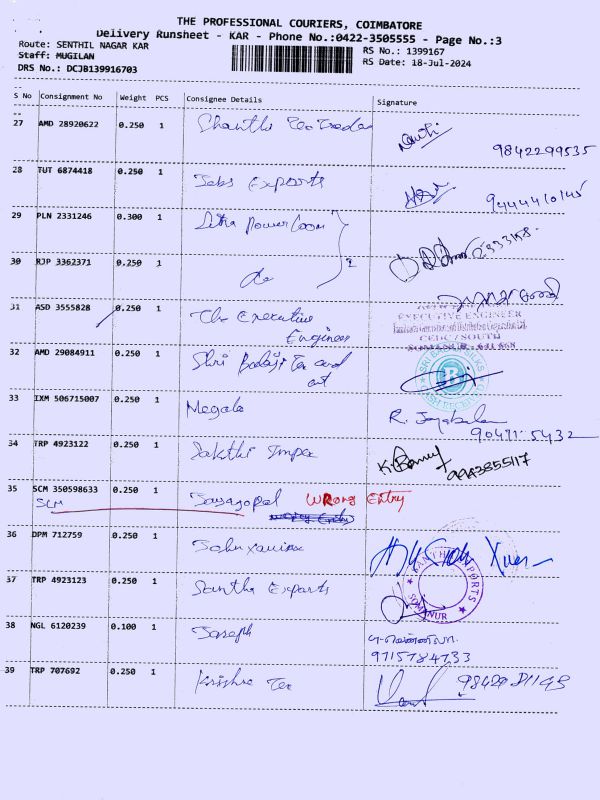 THE PROFESSIONAL COURIERS, COIMBATORE
Delivery Runsheet - KAR - Phone No.:0422-3505555 - Page No.:3
Route: SENTHIL NAGAR KAR
Staff: MUGILAN
DRS No.: DCJB139916703
RS No.: 1399167
RS Date: 18-Jul-2024
S No Consignment No Weight PCS Consignee Details Signature
27 AMD 28920622 0.250 1 Shanthi
9842299535
28 TUT 6874418 0.250 1 Jebs Exports
29 PLN 2331246 0.300 1 Powerloom
30 RJP 3362371 0.250 1 do
31 ASD 3555828 0.250 1 The Executive
Engineer
EXECUTIVE ENGINEER
CEDC / SOUTH
SOMANUR - 641 668
32 AMD 29084911 0.250 1 Shri Balaji Tex and
SRI BALAJI SILKS
B
33 IXM 506715007 0.250 1 Megala
R. Jayabalan
34 TRP 4923122 0.250 1 Sakthi Impex
9943855117
35 SCM 350598633 0.250 1 Jayagopal Wrong Entry
SCM
36 DPM 712759 0.250 1 John Xavier
37 TRP 4923123 0.250 1 Santha Exports
SANTHA EXPORTS
SOMANUR
38 NGL 6120239 0.100 1 Joseph
9715784733
39 TRP 707692 0.250 1 Krishna Tex